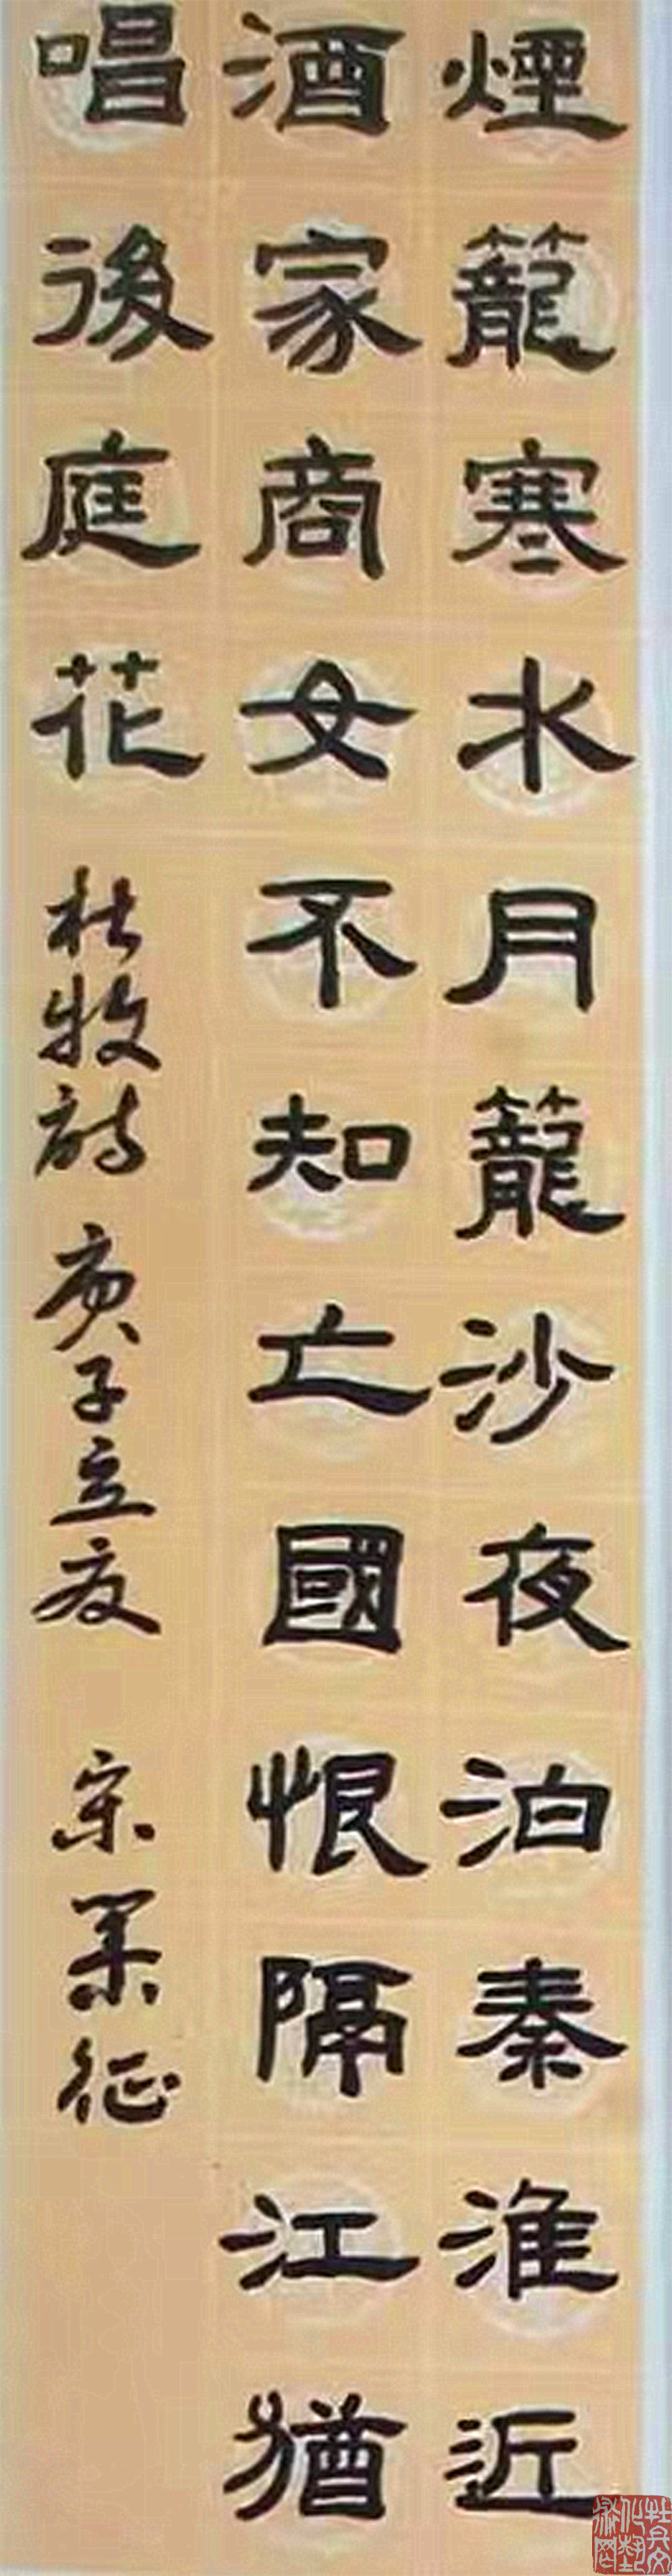 煙籠寒水月籠沙夜泊秦淮近
酒家商女不知亡國恨隔江猶
唱後庭花
杜牧詩 庚子立夏 宋果征